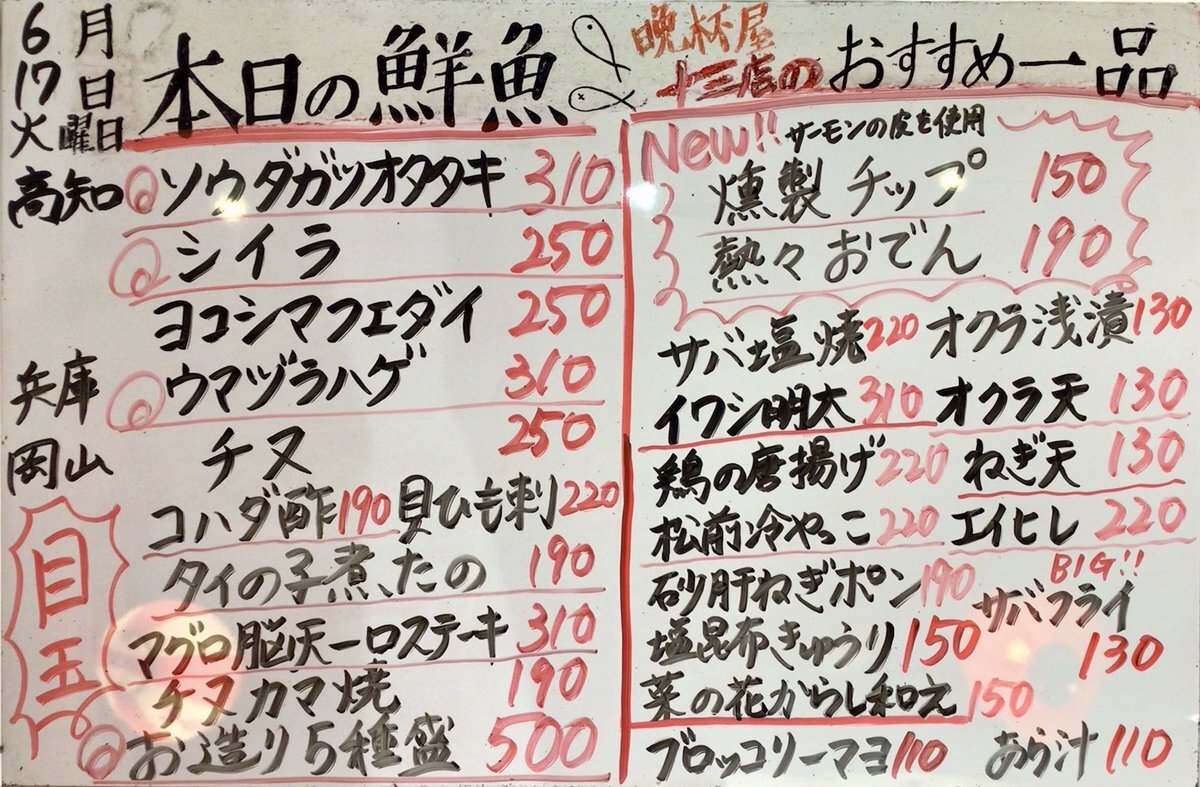 6月
17日
火曜日
本日の鮮魚
高知 ソウダガツオタタキ 310
シイラ 250
ヨコシマフエダイ 250
兵庫 ウマヅラハゲ 310
岡山 チヌ 250
目玉
コハダ酢 190 貝ひも刺 220
タイの子煮たの 190
マグロ脳天一口ステーキ 310
チヌカマ焼 190
お造り5種盛 500
晩杯屋
十三店のおすすめ一品
New!! サーモンの皮を使用
燻製チップ 150
熱々おでん 190
サバ塩焼 220 オクラ浅漬 130
イワシ明太 310 オクラ天 130
鶏の唐揚げ 220 ねぎ天 130
松前冷やっこ 220 エイヒレ 220
砂肝ねぎポン 190
BIG!!
サバフライ 130
塩昆布きゅうり 150
菜の花からし和え 150
ブロッコリーマヨ 110 あら汁 110